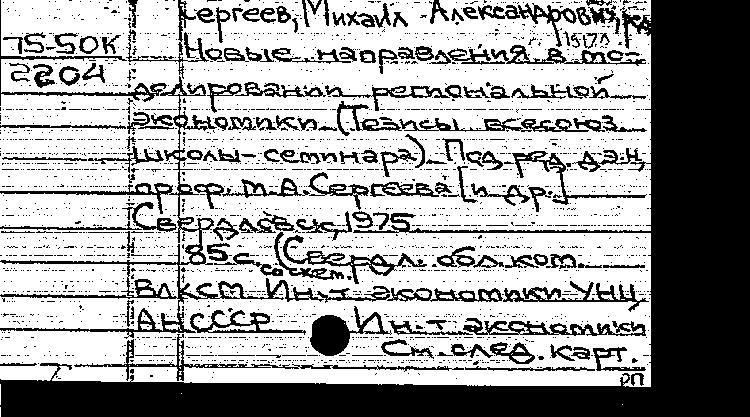 Сергеев, Михаил Александрович, ред.
75-50К
2204
Новые направления в мо-
делировании региональной
экономики (Тезисы всесоюз.
школы-семинара). Под ред. д.э.н,
проф. М.А.Сергеева [и др.]
Свердловск, 1975.
85 с. (Свердл. обл. ком.
со схем.
ВЛКСМ Ин-т экономики УНЦ
АН СССР Ин-т экономики
См. след. карт.
РП